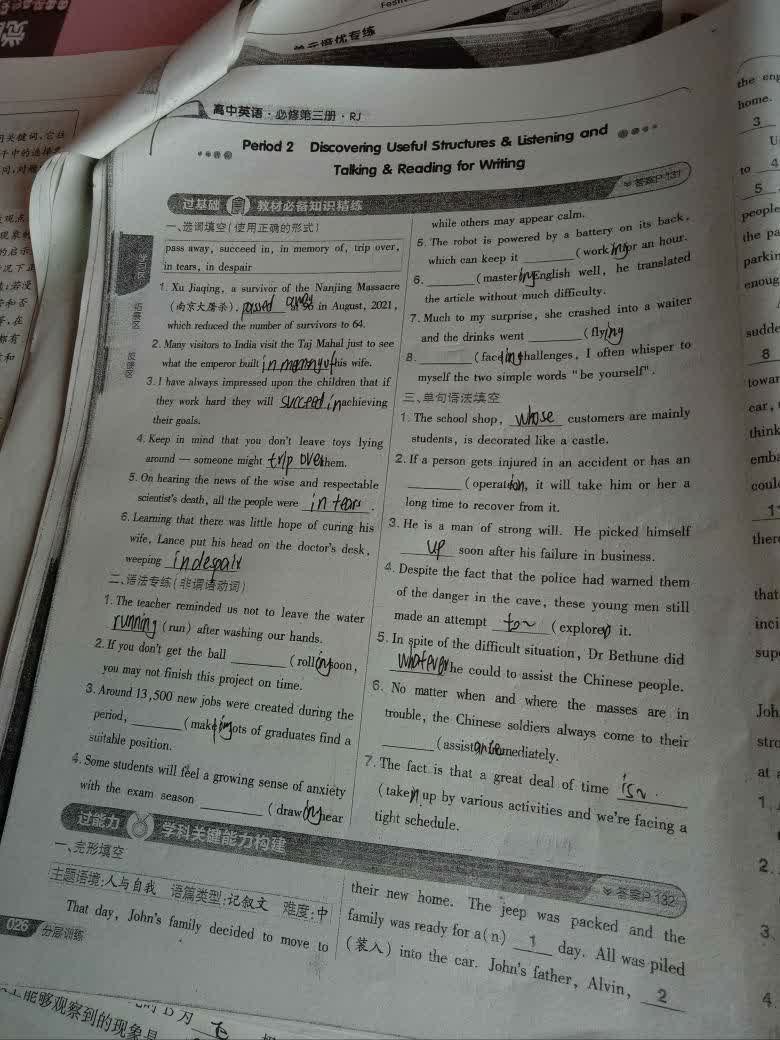 单元培优专练
高中英语·必修第三册·RJ
Period 2 Discovering Useful Structures & Listening and
Talking & Reading for Writing
答案P 131
过基础 教材必备知识精练
一、选词填空(使用正确的形式)
pass away, succeed in, in memory of, trip over,
in tears, in despair
1. Xu Jiaqing, a survivor of the Nanjing Massacre
(南京大屠杀), passed away at 96 in August, 2021,
which reduced the number of survivors to 64.
2. Many visitors to India visit the Taj Mahal just to see
what the emperor built in memory of his wife.
3. I have always impressed upon the children that if
they work hard they will succeed in achieving
their goals.
4. Keep in mind that you don't leave toys lying
around — someone might trip over them.
5. On hearing the news of the wise and respectable
scientist's death, all the people were in tears.
6. Learning that there was little hope of curing his
wife, Lance put his head on the doctor's desk,
weeping in despair
二、语法专练(非谓语动词)
1. The teacher reminded us not to leave the water
running (run) after washing our hands.
2. If you don't get the ball ______ (roll) ing soon,
you may not finish this project on time.
3. Around 13,500 new jobs were created during the
period, ______ (make) ing lots of graduates find a
suitable position.
4. Some students will feel a growing sense of anxiety
with the exam season ______ (draw) ing near
while others may appear calm.
5. The robot is powered by a battery on its back,
which can keep it ______ (work) ing for an hour.
6. ______ (master) ing English well, he translated
the article without much difficulty.
7. Much to my surprise, she crashed into a waiter
and the drinks went ______ (fly) ing
8. ______ (face) ing challenges, I often whisper to
myself the two simple words "be yourself".
三、单句语法填空
1. The school shop, whose customers are mainly
students, is decorated like a castle.
2. If a person gets injured in an accident or has an
______ (operate) ion, it will take him or her a
long time to recover from it.
3. He is a man of strong will. He picked himself
up soon after his failure in business.
4. Despite the fact that the police had warned them
of the danger in the cave, these young men still
made an attempt to ~ (explore) it.
5. In spite of the difficult situation, Dr Bethune did
whatever he could to assist the Chinese people.
6. No matter when and where the masses are in
trouble, the Chinese soldiers always come to their
______ (assist) ance immediately.
7. The fact is that a great deal of time is ~
(take) n up by various activities and we're facing a
tight schedule.
过能力 学科关键能力构建
答案P 132
一、完形填空
主题语境:人与自我 语篇类型:记叙文 难度:中
That day, John's family decided to move to
their new home. The jeep was packed and the
family was ready for a(n) 1 day. All was piled
(装入) into the car. John's father, Alvin, 2
026 分层训练
能够观察到的现象是
the eng
home.
3
to 4
5
people
the pa
parkin
enoug
sudde
8
towar
car,
think
emba
coul
ther
that
inci
sup
Joh
stro
at
1.
2.
3.
4.